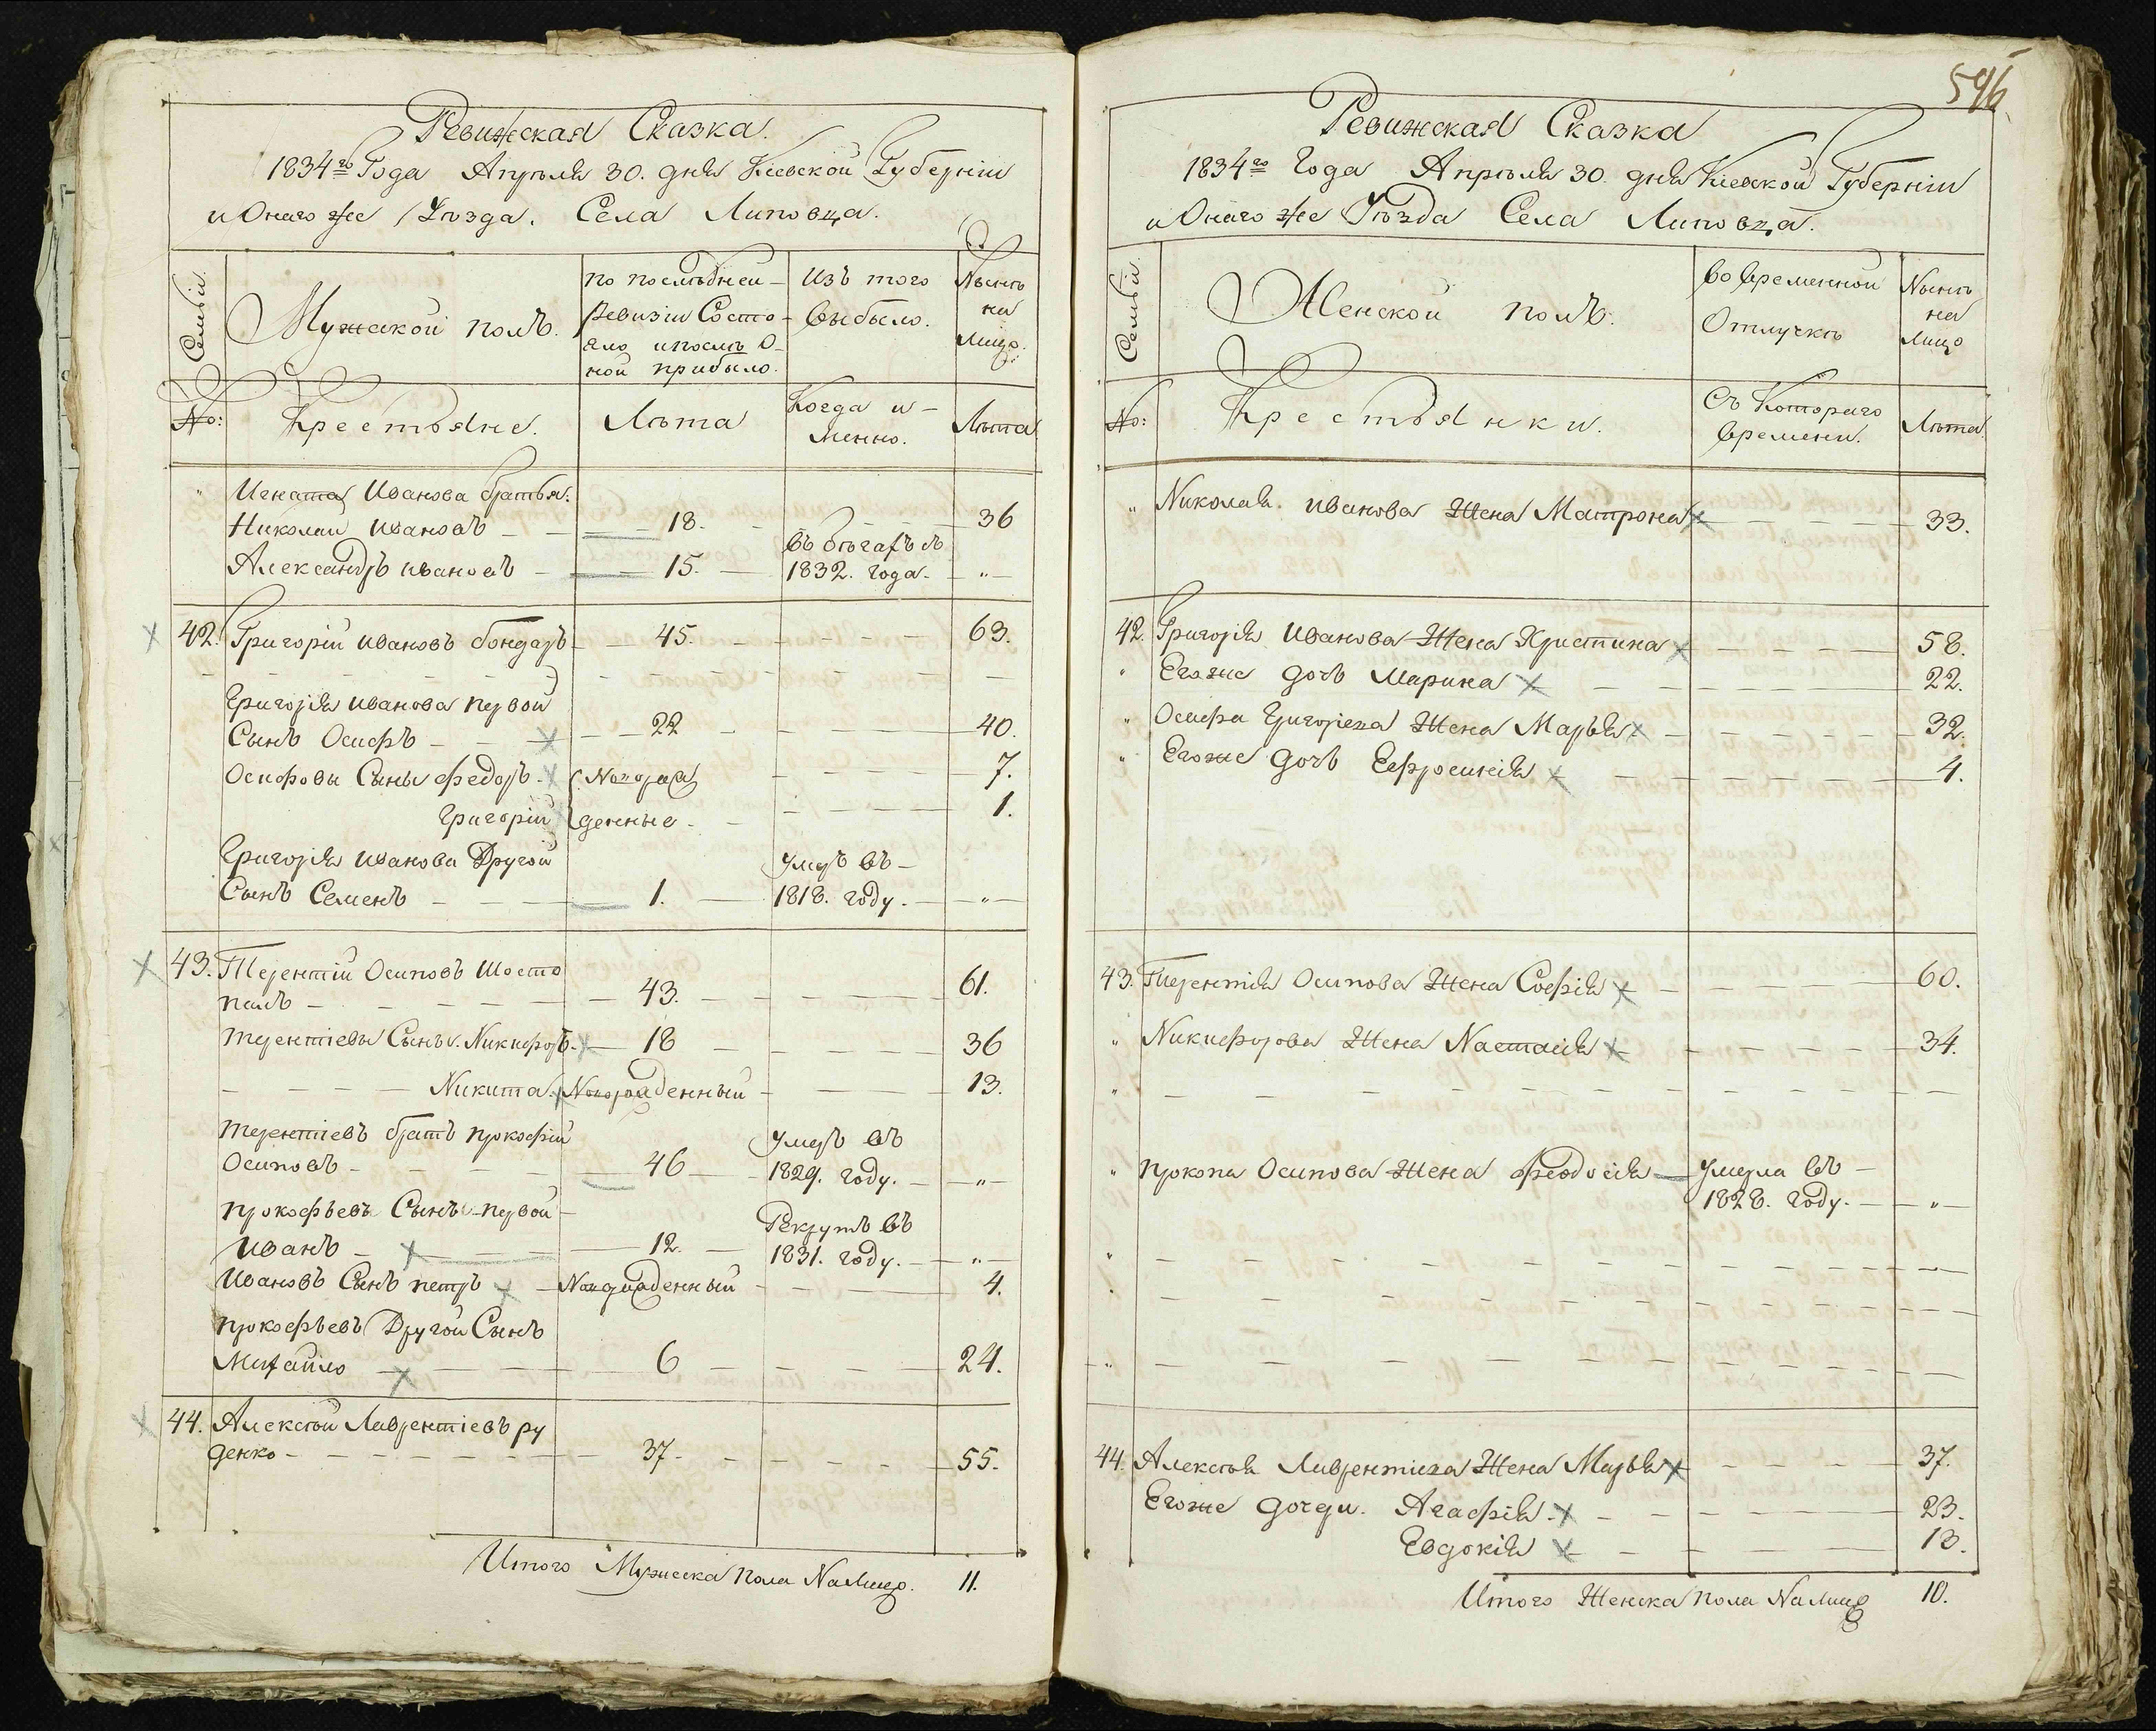 Ревижская Сказка.
1834го Года Апреля 30. дня Кіевской Губерніи
и Онаго же Уѣзда. Села Липовца.
Семьи.
Мужеской полъ.
по последней
Ревизіи Состо-
яло и после О-
ной прибыло.
Изъ того
выбыло.
Нынѣ
на
Лицо.
№:
Крестьяне.
Лѣта
Когда и-
менно.
Лѣта
" Игната Иванова братья.
Николай Ивановъ 18. 36
Александръ Ивановъ 15. въ бѣгахъ съ
1832. года. "
42. Григорій Ивановъ бондарь 45. 63.
Григорія Иванова первой
Сынъ Осифъ 22 40.
Осифовы Сыны Федоръ Новорож 7.
Григорій денные 1.
Григорія Иванова Другой
Сынъ Семенъ 1. Умеръ въ
1818. году. "
43. Терентій Осиповъ Шосто
палъ 43. 61.
Терентіевы Сынъ. Никифоръ 18 36
Никита. Новорожденный 13.
Терентіевъ братъ Прокофій
Осиповъ 46 Умеръ въ
1829. году. "
Прокофьевъ Сынъ первой
Иванъ 12. Рекрутъ въ
1831. году. "
Ивановъ Сынъ Петръ Новорожденный 4.
Прокофьевъ Другой Сынъ
Михайло 6 24.
44. Алексѣй Лаврентіевъ Ру
денко 37. 55.
Итого Мужеска пола На Лицо. 11.
596
Ревижская Сказка
1834го Года Апреля 30. дня Кіевской Губерніи
и Онаго же Уѣзда Села Липовца.
Семьи.
Женской полъ.
Во временной
Отлучкѣ
Нынѣ
на
Лицо
№:
Крестьянки.
Съ Котораго
времени.
Лѣта.
" Николая Иванова Жена Матрона 33.
42. Григорія Иванова Жена Христина 58.
" Егоже дочь Марина 22.
" Осифа Григорьева Жена Марья 32.
" Егоже дочь Ефросинія 4.
43. Терентія Осипова Жена Софія 60.
" Никифорова Жена Настасія 34.
"
" Прокопа Осипова Жена Феодосія Умерла въ
1828. году. "
"
"
"
44. Алексѣя Лаврентіева Жена Марья 37.
Егоже дочери. Агафія. 23.
Евдокія 13.
Итого Женска пола На Лицо 10.